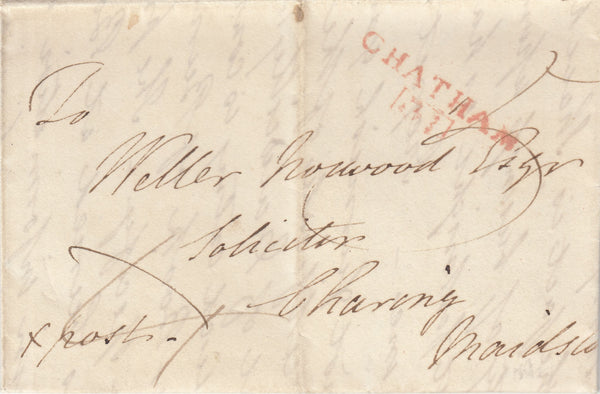 CHATHAM
To
Weller Norwood Esqr
Solicitor
Charing
x post.
Maidsto